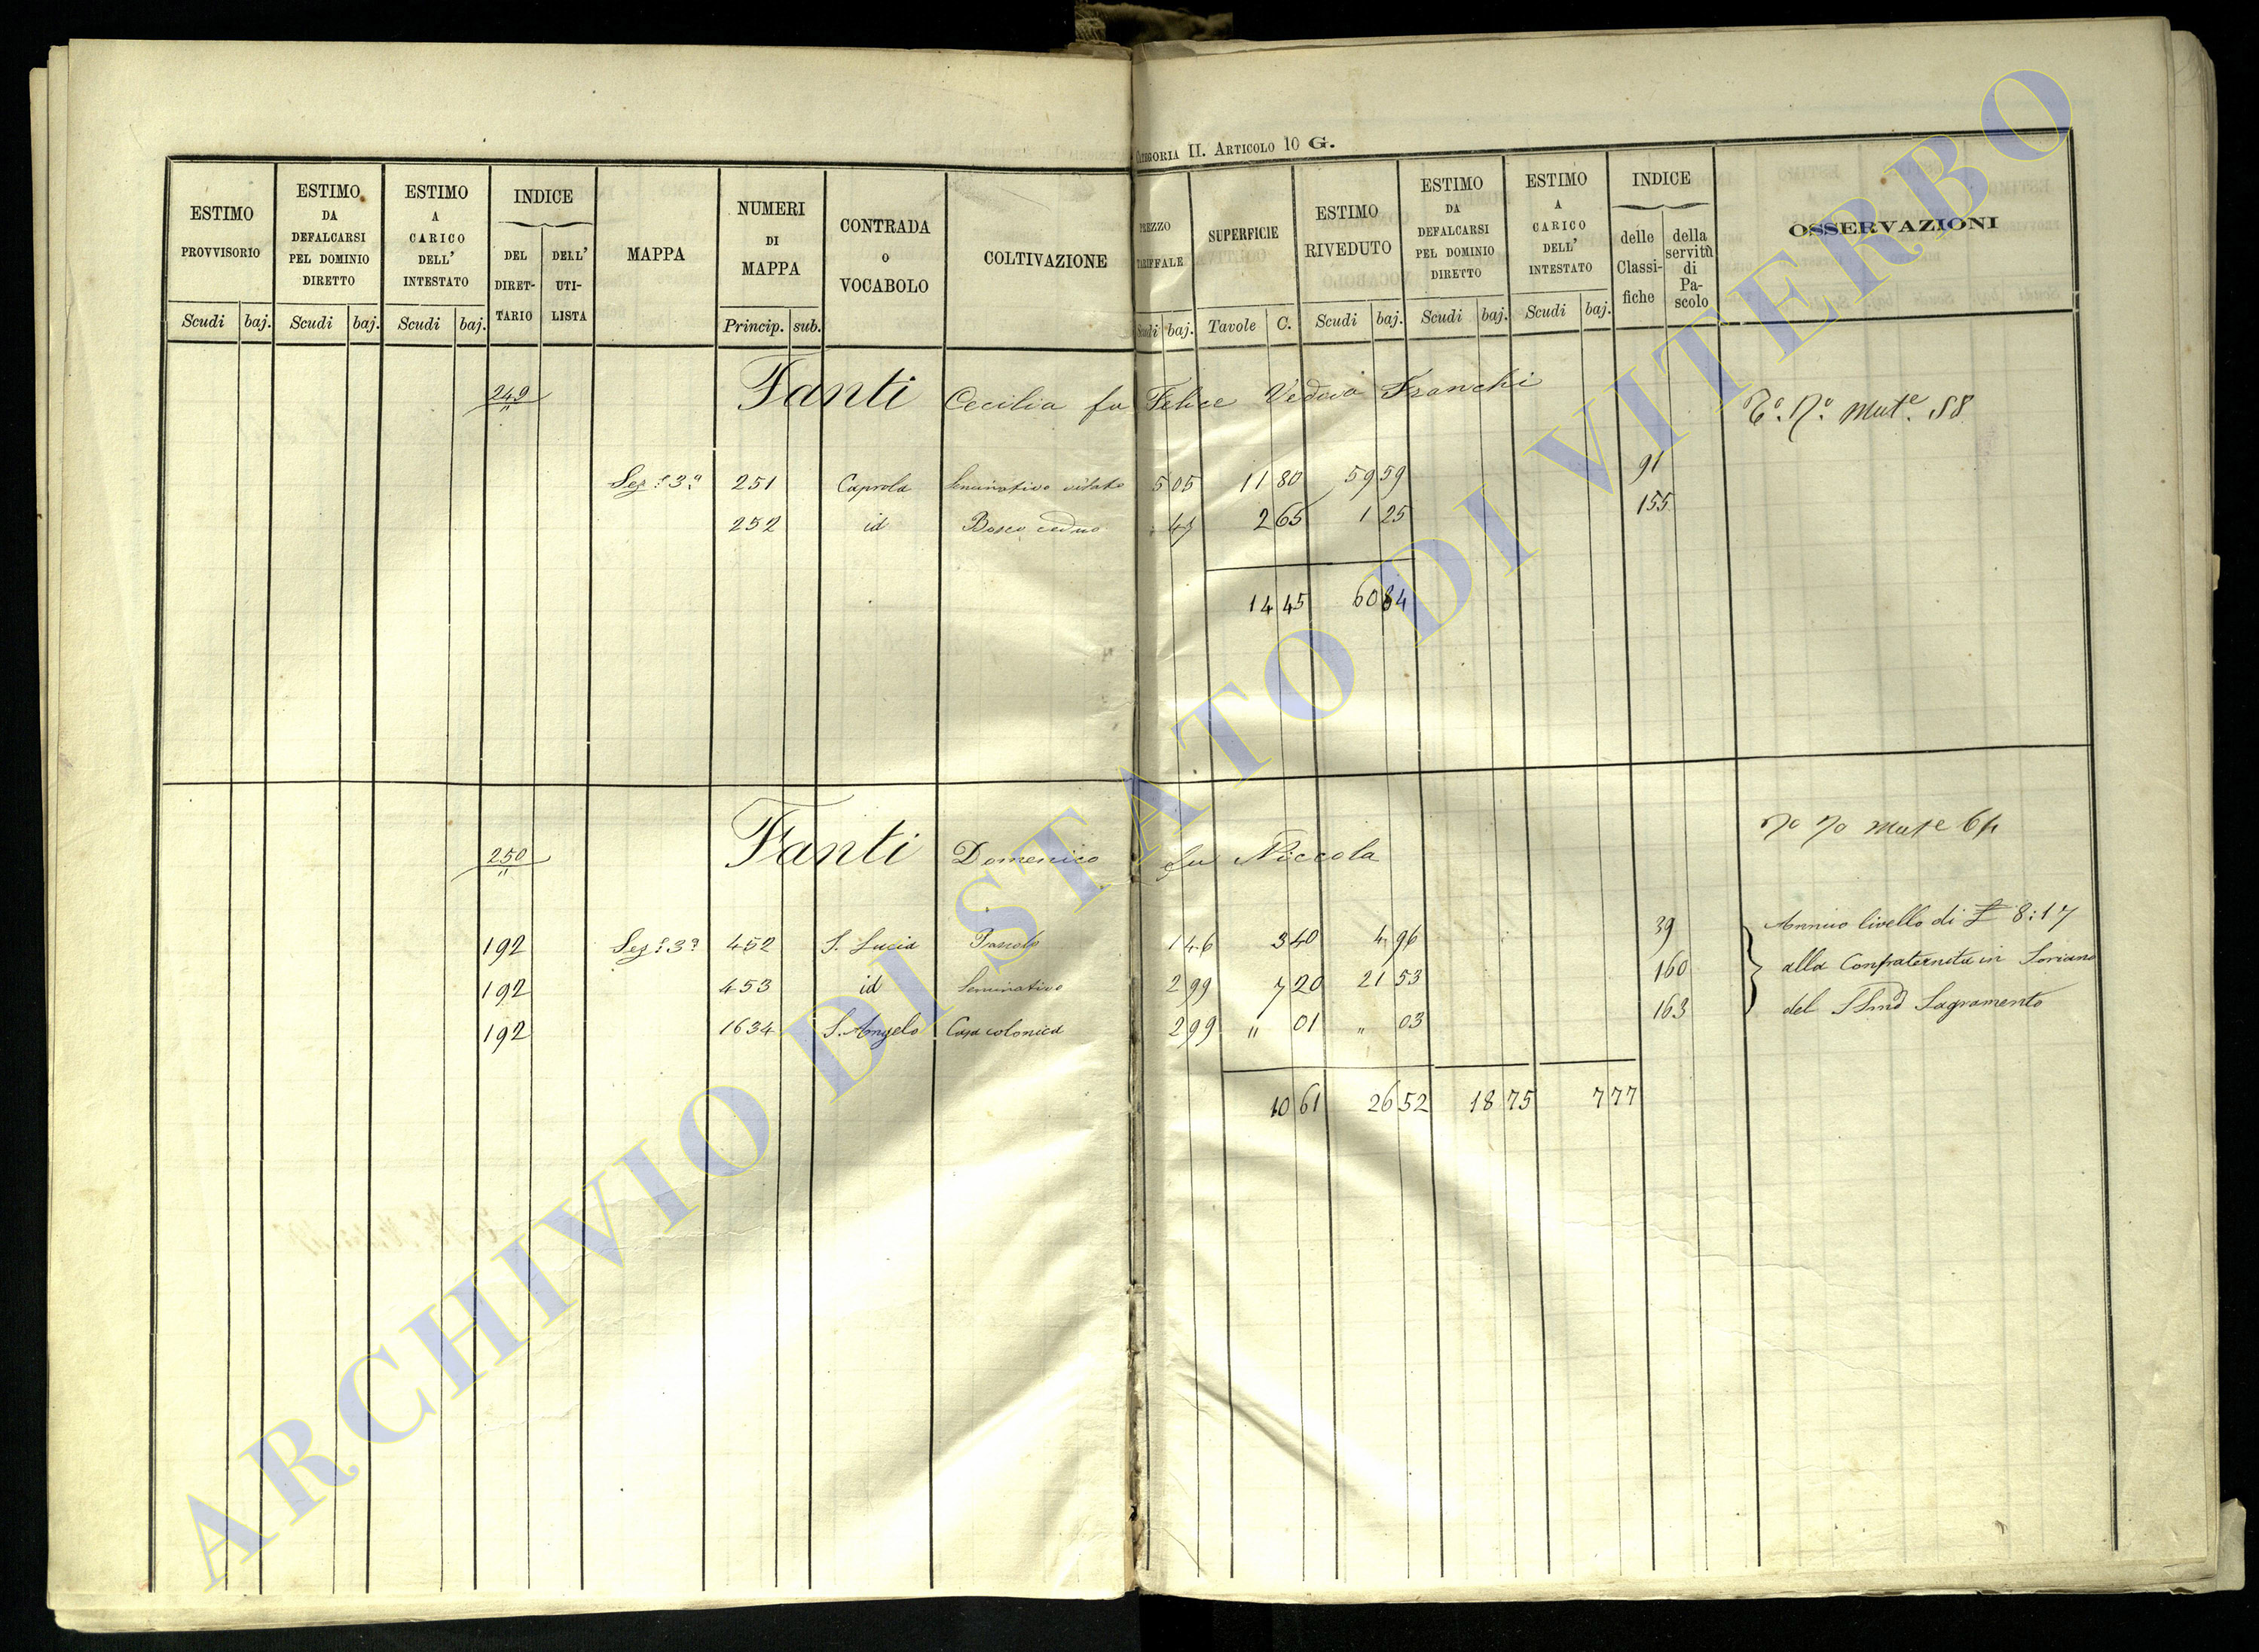 CATEGORIA II. ARTICOLO 10 G.
ESTIMO PROVVISORIO
ESTIMO DA DEFALCARSI PEL DOMINIO DIRETTO
ESTIMO A CARICO DELL' INTESTATO
INDICE
DEL DIRET-TARIO
DELL' UTI-LISTA
MAPPA
NUMERI DI MAPPA
CONTRADA O VOCABOLO
COLTIVAZIONE
PREZZO TARIFFALE
SUPERFICIE
ESTIMO RIVEDUTO
ESTIMO DA DEFALCARSI PEL DOMINIO DIRETTO
ESTIMO A CARICO DELL' INTESTATO
INDICE
delle Classi-fiche
della servitù di Pa-scolo
OSSERVAZIONI
Scudi baj. Scudi baj. Scudi baj. Princip. sub. Scudi baj. Tavole C. Scudi baj. Scudi baj. Scudi baj.
249 Fanti Cecilia fu Felice Vedova Franchi
Mut.e 58
Sez.e 3a 251 Caprola Seminativo vitato 5 05 11 80 59 59 91
252 id Bosco ceduo 47 2 65 1 25 155
14 45 60 84
250 Fanti Domenico fu Niccola
Mut.e 64
192 Sez.e 3a 452 S. Lucia Pascolo 1 46 3 40 4 96 39 Annuo livello di £ 8:17
192 453 id Seminativo 2 99 7 20 21 53 160 alla Confraternita in Soriano
192 1634 S. Angelo Casa colonica 2 99 " 01 " 03 163 del SSmo Sagramento
10 61 26 52 18 75 7 77
ARCHIVIO DI STATO DI VITERBO